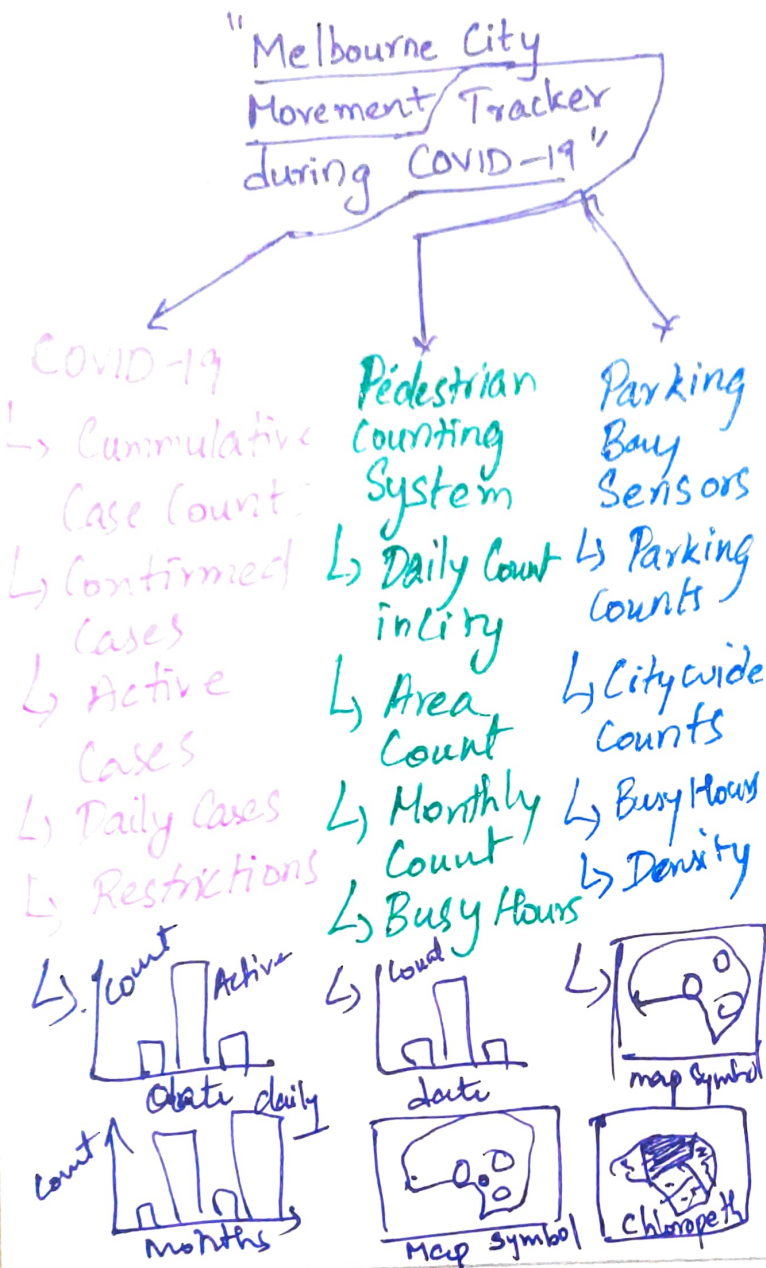 "Melbourne City
Movement Tracker
during COVID-19"
COVID-19
↳ Cummulative
Case Count
↳ Confirmed
Cases
↳ Active
Cases
↳ Daily Cases
↳ Restrictions
Count
Active
date daily
Count
Months
Pedestrian
Counting
System
↳ Daily Count
in City
↳ Area
Count
↳ Monthly
Count
↳ Busy Hours
Count
date
Map Symbol
Parking
Bay
Sensors
↳ Parking
Counts
↳ City wide
Counts
↳ Busy Hours
↳ Density
map Symbol
Chloropeth